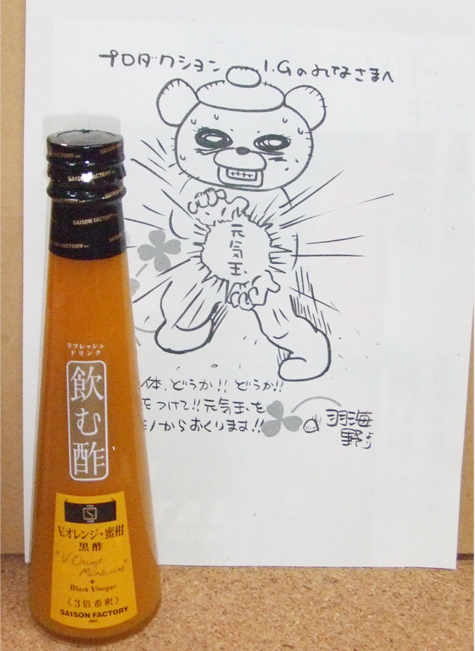 プロダクション I.Gのみなさまへ
元気玉
体、どうか!! どうか!!
をつけて!! 元気玉を
からおくります!!
羽海野より
SAISON FACTORY
SAISON FACTORY
リフレッシュ
ドリンク
飲む酢
V.オレンジ+蜜柑
黒酢
+
Black Vinegar
〈3倍希釈〉
SAISON FACTORY
INC.